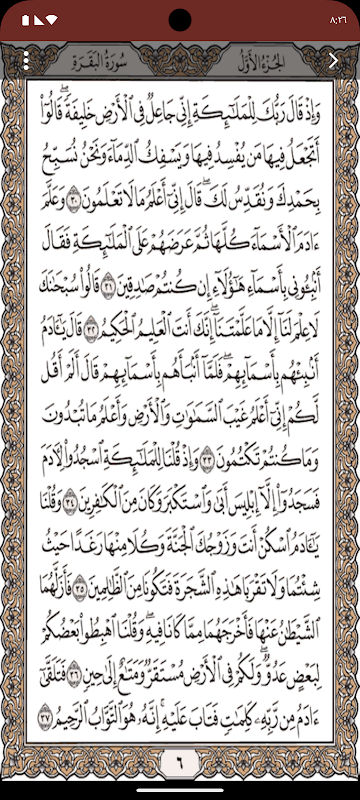 ٨:٢٦
الجُزءُ الأَوَّلُ
سُورَةُ البَقَرَةِ
وَإِذْ قَالَ رَبُّكَ لِلْمَلَٰٓئِكَةِ إِنِّى جَاعِلٌ فِى ٱلْأَرْضِ خَلِيفَةً ۖ قَالُوٓا۟
أَتَجْعَلُ فِيهَا مَن يُفْسِدُ فِيهَا وَيَسْفِكُ ٱلدِّمَآءَ وَنَحْنُ نُسَبِّحُ
بِحَمْدِكَ وَنُقَدِّسُ لَكَ ۖ قَالَ إِنِّىٓ أَعْلَمُ مَا لَا تَعْلَمُونَ ٣٠ وَعَلَّمَ
ءَادَمَ ٱلْأَسْمَآءَ كُلَّهَا ثُمَّ عَرَضَهُمْ عَلَى ٱلْمَلَٰٓئِكَةِ فَقَالَ
أَنۢبِـُٔونِى بِأَسْمَآءِ هَٰٓؤُلَآءِ إِن كُنتُمْ صَٰدِقِينَ ٣١ قَالُوا۟ سُبْحَٰنَكَ
لَا عِلْمَ لَنَآ إِلَّا مَا عَلَّمْتَنَآ ۖ إِنَّكَ أَنتَ ٱلْعَلِيمُ ٱلْحَكِيمُ ٣٢ قَالَ يَٰٓـَٔادَمُ
أَنۢبِئْهُم بِأَسْمَآئِهِمْ ۖ فَلَمَّآ أَنۢبَأَهُم بِأَسْمَآئِهِمْ قَالَ أَلَمْ أَقُل
لَّكُمْ إِنِّىٓ أَعْلَمُ غَيْبَ ٱلسَّمَٰوَٰتِ وَٱلْأَرْضِ وَأَعْلَمُ مَا تُبْدُونَ
وَمَا كُنتُمْ تَكْتُمُونَ ٣٣ وَإِذْ قُلْنَا لِلْمَلَٰٓئِكَةِ ٱسْجُدُوا۟ لِءَادَمَ
فَسَجَدُوٓا۟ إِلَّآ إِبْلِيسَ أَبَىٰ وَٱسْتَكْبَرَ وَكَانَ مِنَ ٱلْكَٰفِرِينَ ٣٤ وَقُلْنَا
يَٰٓـَٔادَمُ ٱسْكُنْ أَنتَ وَزَوْجُكَ ٱلْجَنَّةَ وَكُلَا مِنْهَا رَغَدًا حَيْثُ
شِئْتُمَا وَلَا تَقْرَبَا هَٰذِهِ ٱلشَّجَرَةَ فَتَكُونَا مِنَ ٱلظَّٰلِمِينَ ٣٥ فَأَزَلَّهُمَا
ٱلشَّيْطَٰنُ عَنْهَا فَأَخْرَجَهُمَا مِمَّا كَانَا فِيهِ ۖ وَقُلْنَا ٱهْبِطُوا۟ بَعْضُكُمْ
لِبَعْضٍ عَدُوٌّ ۖ وَلَكُمْ فِى ٱلْأَرْضِ مُسْتَقَرٌّ وَمَتَٰعٌ إِلَىٰ حِينٍ ٣٦ فَتَلَقَّىٰٓ
ءَادَمُ مِن رَّبِّهِۦ كَلِمَٰتٍ فَتَابَ عَلَيْهِ ۚ إِنَّهُۥ هُوَ ٱلتَّوَّابُ ٱلرَّحِيمُ ٣٧
٦